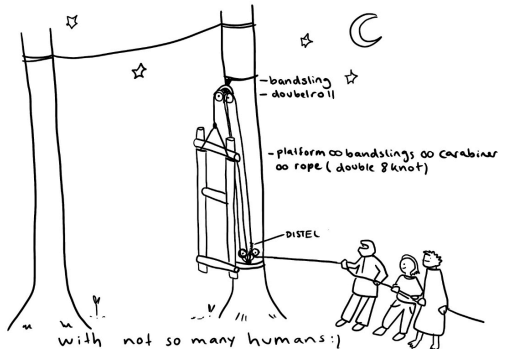 - bandsling
- doubelroll
- platform ∞ bandslings ∞ carabiner
∞ rope (double 8 knot)
- DISTEL
with not so many humans:)